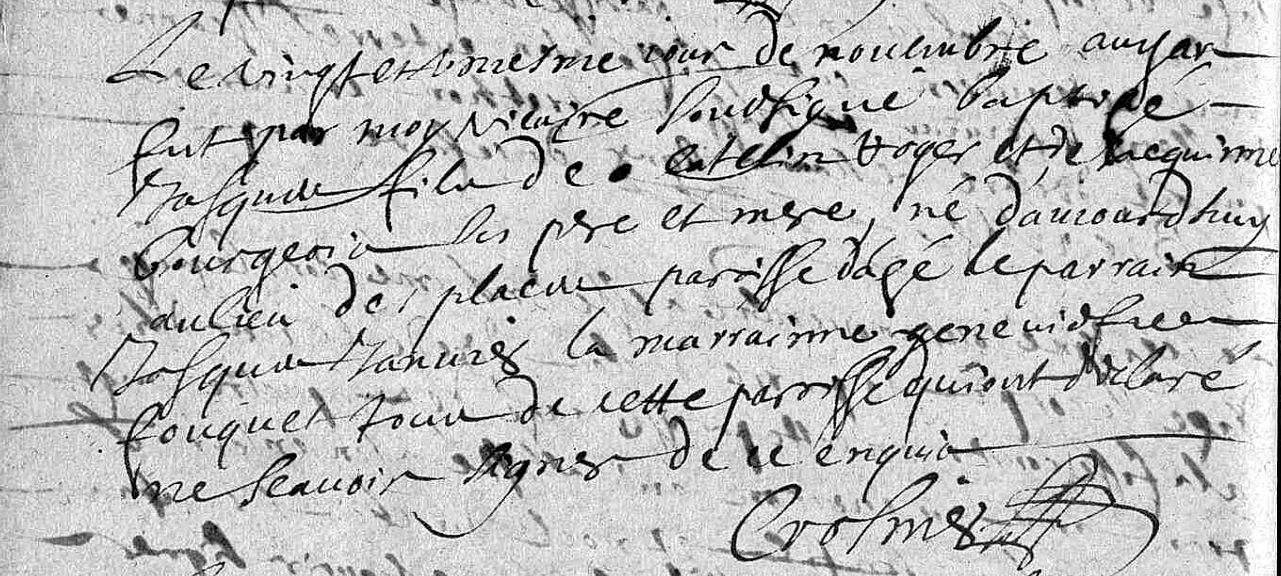 Le vingt et uniesme jour de nouembre aud an
fut par moy vicaire soubsigné baptisé
Jasques fils de catelin Roger et de Jacquinne
bourgeois ses pere et mere, né d'aujourd'huy
au lieu des places paroisse d'agé le parrain
Jasques la marrainne geneuiefue
fouquet tous de cette paroisse qui ont déclaré
ne scauoir signer de ce enquis
Crosnier